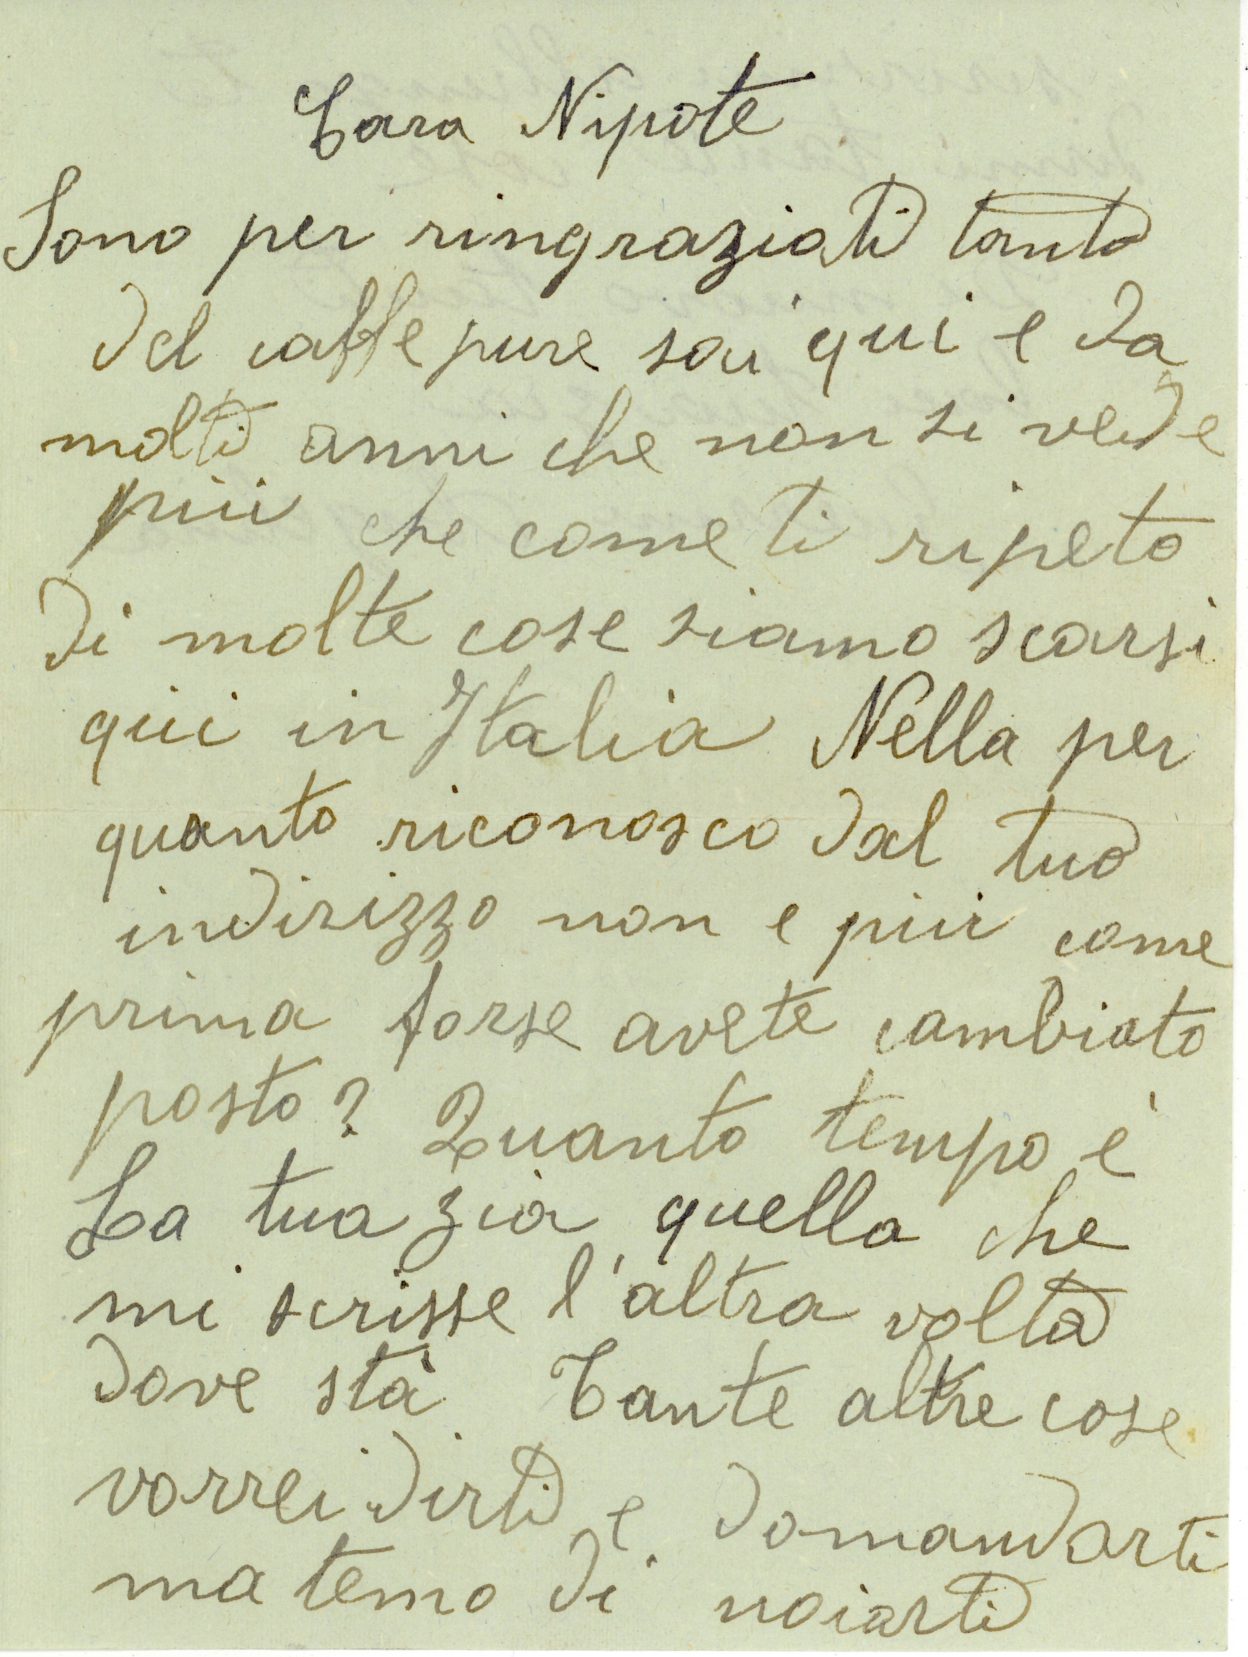 Cara Nipote
Sono per ringraziati tanto
del caffe pure sai qui e da
molti anni che non si vede
piú che come ti ripeto
di molte cose siamo scarsi
qui in Italia Nella per
quanto riconosco dal tuo
indirizzo non e piú come
prima forse avete cambiato
posto? Quanto tempo é
La tua zia quella che
mi scrisse l'altra volta
dove stá Tante altre cose
vorrei dirti e domandarti
ma temo di noiarti